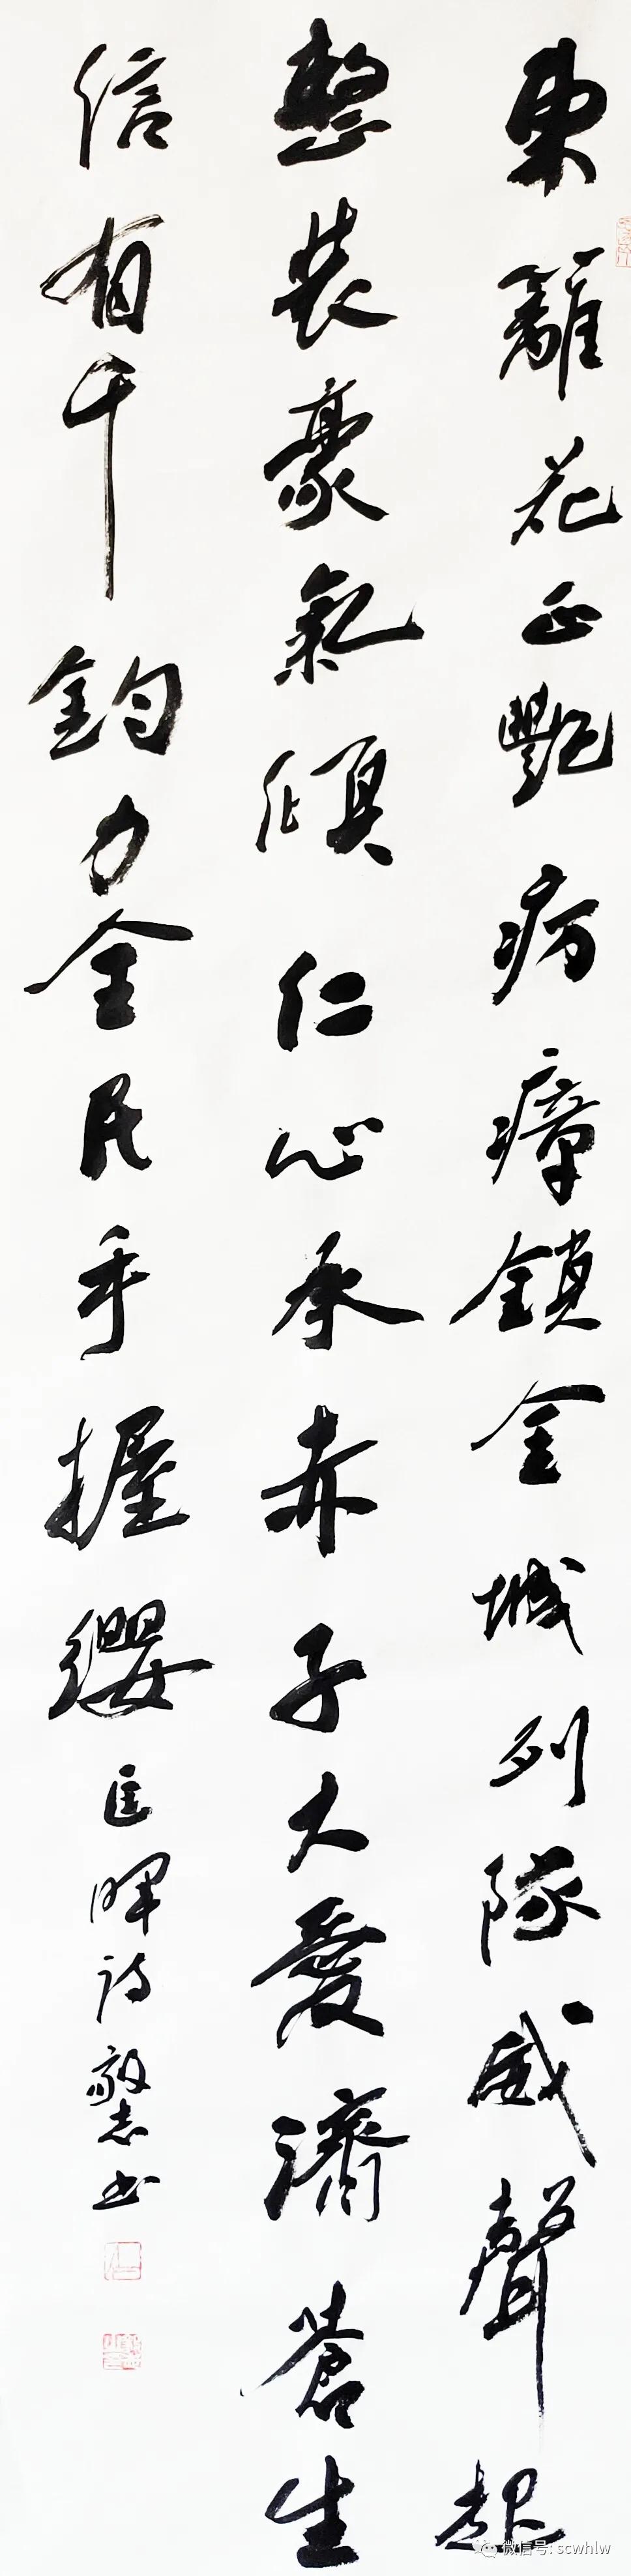 東籬花正艷疠瘴鎖金城列隊威聲起
整裝豪氣傾仁心承赤子大愛濟蒼生
信有千鈞力全民手握纓
匡暉诗敬志书
微信号: scwhlw